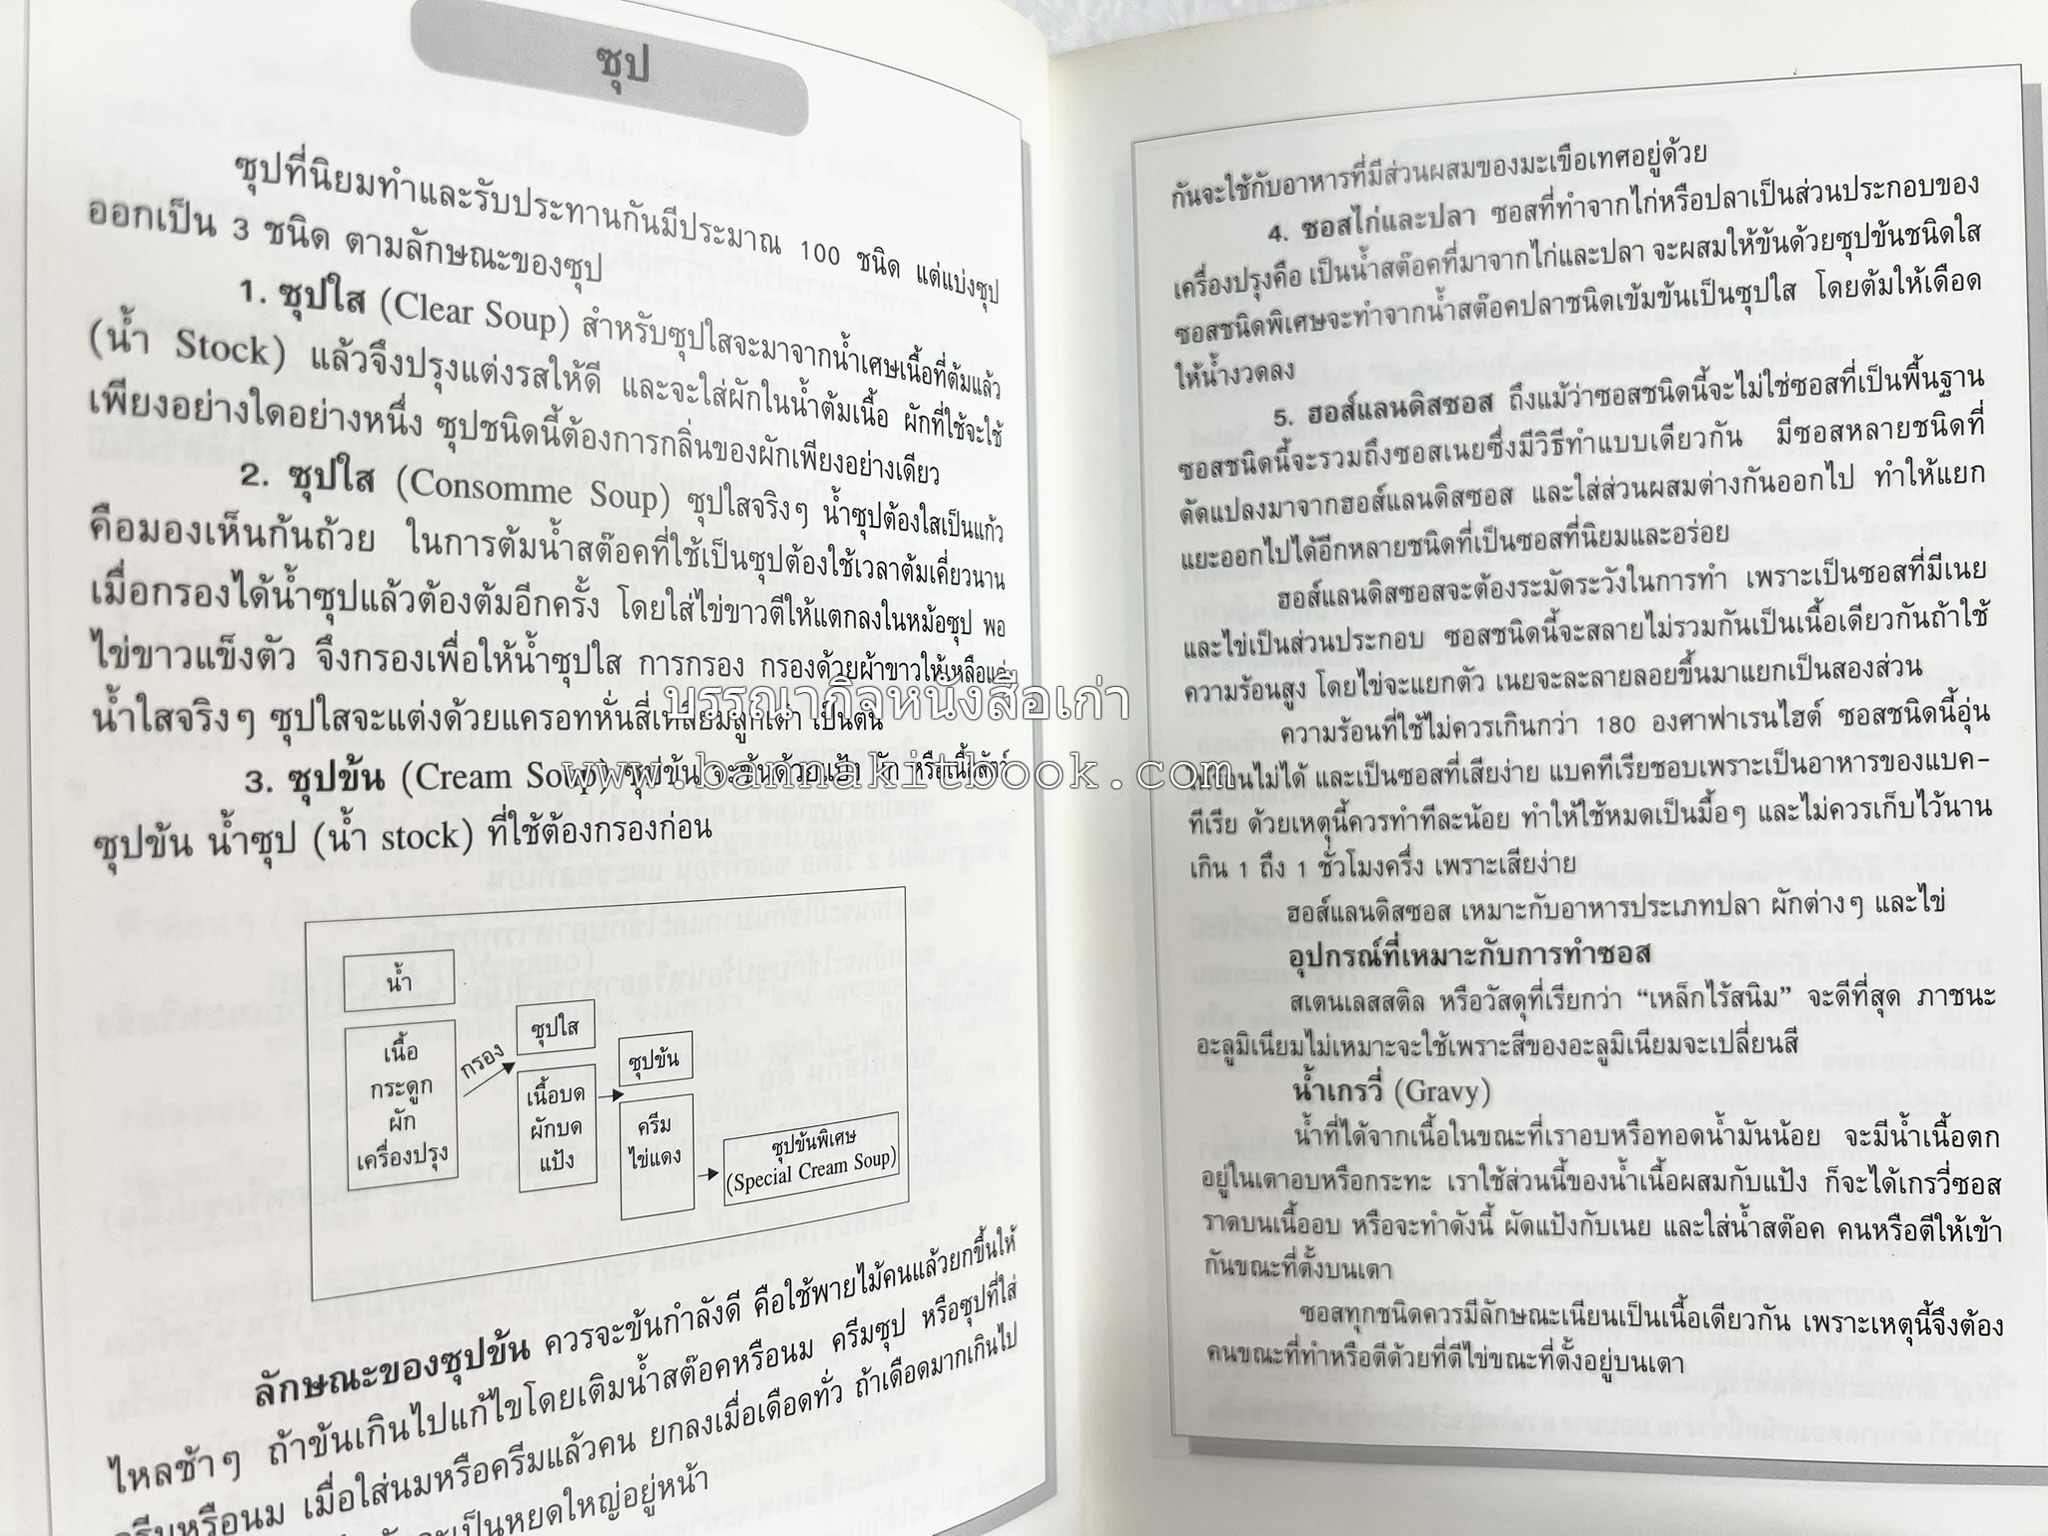 ซุป
ซุปที่นิยมทำและรับประทานกันมีประมาณ 100 ชนิด แต่แบ่งซุป
ออกเป็น 3 ชนิด ตามลักษณะของซุป
1. ซุปใส (Clear Soup) สำหรับซุปใสจะมาจากน้ำเศษเนื้อที่ต้มแล้ว
(น้ำ Stock) แล้วจึงปรุงแต่งรสให้ดี และจะใส่ผักในน้ำต้มเนื้อ ผักที่ใช้จะใช้
เพียงอย่างใดอย่างหนึ่ง ซุปชนิดนี้ต้องการกลิ่นของผักเพียงอย่างเดียว
2. ซุปใส (Consomme Soup) ซุปใสจริงๆ น้ำซุปต้องใสเป็นแก้ว
คือมองเห็นก้นถ้วย ในการต้มน้ำสต๊อคที่ใช้เป็นซุปต้องใช้เวลาต้มเคี่ยวนาน
เมื่อกรองได้น้ำซุปแล้วต้องต้มอีกครั้ง โดยใส่ไข่ขาวตีให้แตกลงในหม้อซุป พอ
ไข่ขาวแข็งตัว จึงกรองเพื่อให้น้ำซุปใส การกรอง กรองด้วยผ้าขาวให้เหลือแต่
น้ำใสจริงๆ ซุปใสจะแต่งด้วยแครอทหั่นสี่เหลี่ยมลูกเต๋า เป็นต้น
3. ซุปข้น (Cream Soup) ซุปข้น จะข้นด้วยแป้ง ผัก หรือเนื้อสัตว์
ซุปข้น น้ำซุป (น้ำ stock) ที่ใช้ต้องกรองก่อน
น้ำ
เนื้อ
กระดูก
ผัก
เครื่องปรุง
กรอง
ซุปใส
เนื้อบด
ผักบด
แป้ง
ซุปข้น
ครีม
ไข่แดง
ซุปข้นพิเศษ
(Special Cream Soup)
ลักษณะของซุปข้น ควรจะข้นกำลังดี คือใช้พายไม้คนแล้วยกขึ้นให้
ไหลช้าๆ ถ้าข้นเกินไปแก้ไขโดยเติมน้ำสต๊อคหรือนม ครีมซุป หรือซุปที่ใส่
ครีมหรือนม เมื่อใส่นมหรือครีมแล้วคน ยกลงเมื่อเดือดทั่ว ถ้าเดือดมากเกินไป
เป็นหยดใหญ่อยู่หน้า
กันจะใช้กับอาหารที่มีส่วนผสมของมะเขือเทศอยู่ด้วย
4. ซอสไก่และปลา ซอสที่ทำจากไก่หรือปลาเป็นส่วนประกอบของ
เครื่องปรุงคือ เป็นน้ำสต๊อคที่มาจากไก่และปลา จะผสมให้ข้นด้วยซุปข้นชนิดใส
ซอสชนิดพิเศษจะทำจากน้ำสต๊อคปลาชนิดเข้มข้นเป็นซุปใส โดยต้มให้เดือด
ให้น้ำงวดลง
5. ฮอส์แลนดิสซอส ถึงแม้ว่าซอสชนิดนี้จะไม่ใช่ซอสที่เป็นพื้นฐาน
ซอสชนิดนี้จะรวมถึงซอสเนยซึ่งมีวิธีทำแบบเดียวกัน มีซอสหลายชนิดที่
ดัดแปลงมาจากฮอส์แลนดิสซอส และใส่ส่วนผสมต่างกันออกไป ทำให้แยก
แยะออกไปได้อีกหลายชนิดที่เป็นซอสที่นิยมและอร่อย
ฮอส์แลนดิสซอสจะต้องระมัดระวังในการทำ เพราะเป็นซอสที่มีเนย
และไข่เป็นส่วนประกอบ ซอสชนิดนี้จะสลายไม่รวมกันเป็นเนื้อเดียวกันถ้าใช้
ความร้อนสูง โดยไข่จะแยกตัว เนยจะละลายลอยขึ้นมาแยกเป็นสองส่วน
ความร้อนที่ใช้ไม่ควรเกินกว่า 180 องศาฟาเรนไฮต์ ซอสชนิดนี้อุ่น
ไม่ได้ และเป็นซอสที่เสียง่าย แบคทีเรียชอบเพราะเป็นอาหารของแบค-
ทีเรีย ด้วยเหตุนี้ควรทำทีละน้อย ทำให้ใช้หมดเป็นมื้อๆ และไม่ควรเก็บไว้นาน
เกิน 1 ถึง 1 ชั่วโมงครึ่ง เพราะเสียง่าย
ฮอส์แลนดิสซอส เหมาะกับอาหารประเภทปลา ผักต่างๆ และไข่
อุปกรณ์ที่เหมาะกับการทำซอส
สเตนเลสสติล หรือวัสดุที่เรียกว่า “เหล็กไร้สนิม” จะดีที่สุด ภาชนะ
อะลูมิเนียมไม่เหมาะจะใช้เพราะสีของอะลูมิเนียมจะเปลี่ยนสี
น้ำเกรวี่ (Gravy)
น้ำที่ได้จากเนื้อในขณะที่เราอบหรือทอดน้ำมันน้อย จะมีน้ำเนื้อตก
อยู่ในเตาอบหรือกระทะ เราใช้ส่วนนี้ของน้ำเนื้อผสมกับแป้ง ก็จะได้เกรวี่ซอส
ราดบนเนื้ออบ หรือจะทำดังนี้ ผัดแป้งกับเนย และใส่น้ำสต๊อค คนหรือตีให้เข้า
กันขณะที่ตั้งบนเตา
ซอสทุกชนิดควรมีลักษณะเนียนเป็นเนื้อเดียวกัน เพราะเหตุนี้จึงต้อง
คนขณะที่ทำหรือตีด้วยที่ตีไข่ขณะที่ตั้งอยู่บนเตา
บรรณากิจหนังสือเก่า
www.bannakitbook.com